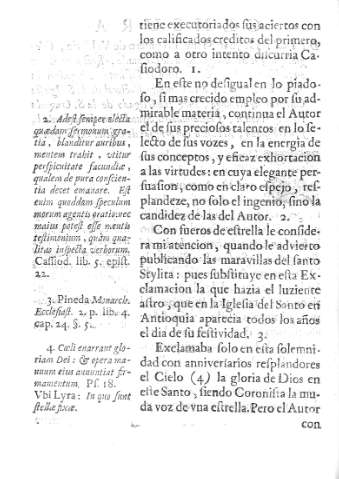 tiene executoriados sus aciertos con
los calificados creditos del primero,
como a otro intento discurria Ca-
siodoro. 1.
En este no desigual en lo piado-
so, si mas crecido empleo por su ad-
mirable materia, continua el Autor
el de sus preciosos talentos en lo se-
lecto de sus vozes, en la energia de
sus conceptos, y eficaz exhortacion
a las virtudes: en cuya elegante per-
suasion, como en claro espejo, res-
plandeze, no solo el ingenio, sino la
candidez de las del Autor. 2.
Con fueros de estrella le conside-
ra mi atencion, quando le advierto
publicando las maravillas del santo
Stylita: pues substituye en esta Ex-
clamacion la que hazia el luziente
astro, que en la Iglesia del Santo en
Antioquia aparecia todos los años
el dia de su festividad. 3.
Exclamaba solo en esta solemni-
dad con anniversarios resplandores
el Cielo (4) la gloria de Dios en
este Santo, siendo Coronista la mu-
da voz de vna estrella. Pero el Autor
con
2. Adest semper electa
quædam sermonum gra-
tia, blanditur auribus,
mentem trahit, vtitur
perspicuitate facundiæ,
qualem de pura conscien-
tia decet emanare. Est
enim quoddam speculum
morum agentis oratio: nec
maius potest esse mentis
testimonium, quàm qua-
litas inspecta verborum.
Cassiod. lib. 5. epist.
22.
3. Pineda Monarch.
Ecclesiast. 2. p. lib. 4.
cap. 24. §. 5.
4. Cæli enarrant glo-
riam Dei: & opera ma-
nuum eius annuntiat fir-
mamentum. Ps. 18.
Vbi Lyra: In quo sunt
stellæ fixæ.